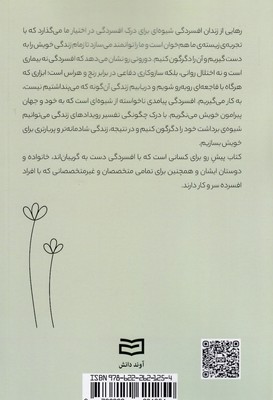 رهایی از زندان افسردگی شیوه‌ای برای درک افسردگی در اختیار ما می‌گذارد که با
تجربه‌ی زیسته‌ی ما هم‌خوان است و ما را توانمند می‌سازد تا زمام زندگی خویش را به
دست گیریم و آن را دگرگون کنیم. دوروتی رو نشان می‌دهد که افسردگی نه بیماری
است و نه اختلال روانی، بلکه سازوکاری دفاعی در برابر رنج و هراس است؛ ابزاری که
هرگاه با فاجعه‌ای روبه‌رو شویم و دریابیم زندگی آن‌گونه که می‌پنداشتیم نیست،
به کار می‌گیریم. افسردگی پیامدی ناخواسته از شیوه‌ای است که به خود و جهان
پیرامون خویش می‌نگریم. با درک چگونگی تفسیر رویدادهای زندگی می‌توانیم
شیوه‌ی برداشت خود را دگرگون کنیم و در نتیجه، زندگی شادمانه‌تر و پربارتری برای
خویش بسازیم.
کتاب پیش رو برای کسانی است که با افسردگی دست به گریبان‌اند، خانواده و
دوستان ایشان و همچنین برای تمامی متخصصان و غیرمتخصصانی که با افراد
افسرده سر و کار دارند.
آوند دانش
ISBN 978-622-262-125-4